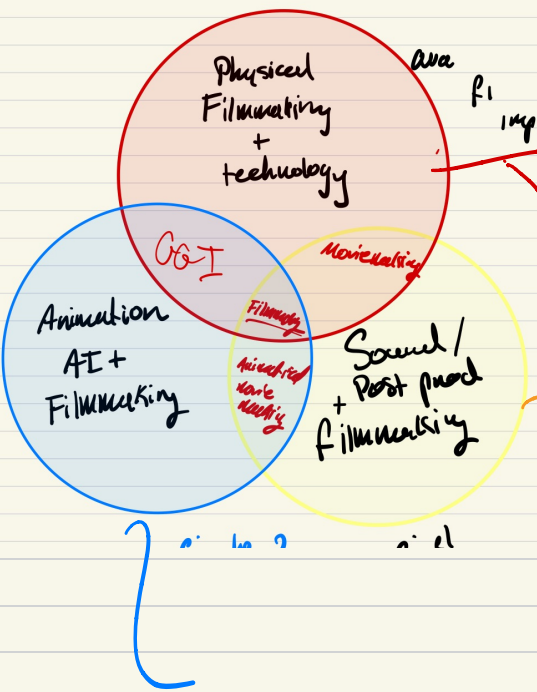 Physical
Filmmaking
+
technology
CGI
Moviemaking
Animation
AI +
Filmmaking
Filmmaking
Animated
movie
making
Sound /
+ Post prod
filmmaking